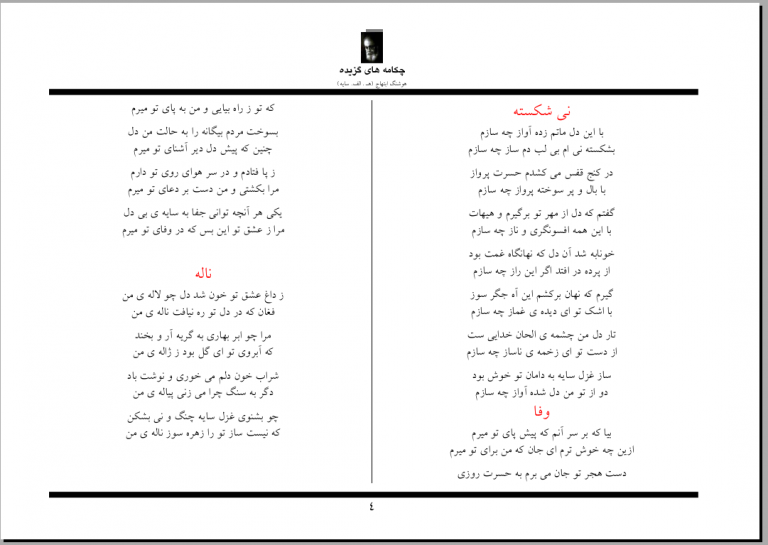 چکامه های گزیده
هوشنگ ابتهاج (هـ. الف. سایه)
نی شکسته
با این دل ماتم زده آواز چه سازم
بشکسته نی ام بی لب دم ساز چه سازم
در کنج قفس می کشدم حسرت پرواز
با بال و پر سوخته پرواز چه سازم
گفتم که دل از مهر تو برگیرم و هیهات
با این همه افسونگری و ناز چه سازم
خونابه شد آن دل که نهانگاه غمت بود
از پرده در افتد اگر این راز چه سازم
گیرم که نهان برکشم این آه جگر سوز
با اشک تو ای دیده ی غماز چه سازم
تار دل من چشمه ی الحان خدایی ست
از دست تو ای زخمه ی ناساز چه سازم
ساز غزل سایه به دامان تو خوش بود
دو از تو من دل شده آواز چه سازم
وفا
بیا که بر سر آنم که پیش پای تو میرم
ازین چه خوش ترم ای جان که من برای تو میرم
دست هجر تو جان می برم به حسرت روزی
که تو ز راه بیایی و من به پای تو میرم
بسوخت مردم بیگانه را به حالت من دل
چنین که پیش دل دیر آشنای تو میرم
ز پا فتادم و در سر هوای روی تو دارم
مرا بکشتی و من دست بر دعای تو میرم
یکی هر آنچه توانی جفا به سایه ی بی دل
مرا ز عشق تو این بس که در وفای تو میرم
ناله
ز داغ عشق تو خون شد دل چو لاله ی من
فغان که در دل تو ره نیافت ناله ی من
مرا چو ابر بهاری به گریه آر و بخند
که آبروی تو ای گل بود ز ژاله ی من
شراب خون دلم می خوری و نوشت باد
دگر به سنگ چرا می زنی پیاله ی من
چو بشنوی غزل سایه چنگ و نی بشکن
که نیست ساز تو را زهره سوز ناله ی من
۴